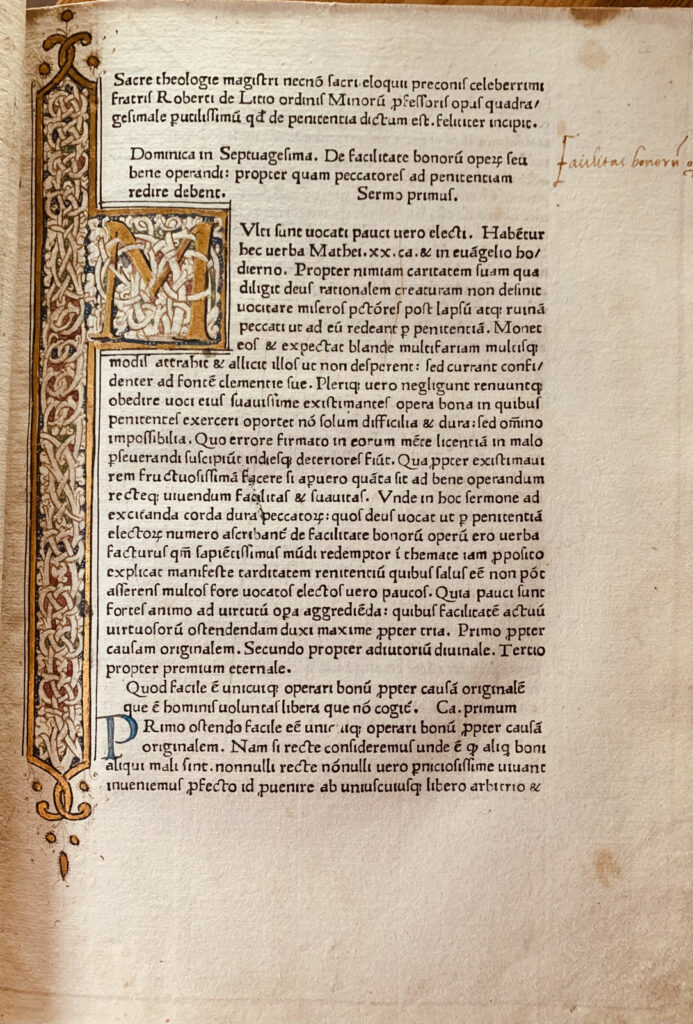 Sacre theologie magistri necnō sacri eloquii preconis celeberrimi
fratris Roberti de Litio ordinis Minorū ꝓfessoris opus quadra/
gesimale putilissimū qđ de penitentia dictum est. feliciter incipit.
Dominica in Septuagesima. De facilitate bonorū operꝝ seu
bene operandi: propter quam peccatores ad penitentiam
redire debent. Sermo primus.
Facilitas bonorū
MVlti sunt uocati pauci uero electi. Habētur
hec uerba Mathei .xx. ca. & in euāgelio ho/
dierno. Propter nimiam caritatem suam qua
diligit deus rationalem creaturam non desinit
uocitare miseros pctōres post lapsū atqꝫ ruinā
peccati ut ad eū redeant p penitentiā. Monet
eos & expectat blande multifariam multisqꝫ
modis attrahit & allicit illos ut non desperent: sed currant confi/
denter ad fontē clementie sue. Pleriqꝫ uero negligunt renuuntqꝫ
obedire uoci eius suauissime existimantes opera bona in quibus
penitentes exerceri oportet nō solum difficilia & dura: sed om̄ino
impossibilia. Quo errore firmato in eorum mēte licentiā in malo
pseuerandi suscipiūt indiesqꝫ deteriores fiūt. Qua ꝓpter existimaui
rem fructuosissimā facere si apuero quāta sit ad bene operandum
recteqꝫ uiuendum facilitas & suauitas. Vnde in hoc sermone ad
excitanda corda dura peccatorꝝ: quos deus uocat ut p penitentiā
electorꝝ numero ascribant̄ de facilitate bonorū operū ero uerba
facturus qm̄ sapiētissimus mūdi redemptor ī themate iam ꝓposito
explicat manifeste tarditatem renitentiū quibus salus eē non pōt
asserens multos fore uocatos electos uero paucos. Quia pauci sunt
fortes animo ad uirtutū oꝑa aggrediēda: quibus facilitatē actuū
uirtuosorū ostendendam duxi maxime ꝓpter tria. Primo ꝓpter
causam originalem. Secundo propter adiutoriū diuinale. Tertio
propter premium eternale.
Quod facile ē unicuiqꝫ operari bonū ꝓpter causā originalē
que ē hominis uoluntas libera que nō cogit̄. Ca. primum
PRimo ostendo facile eē unicuiqꝫ operari bonū ꝓpter causā
originalem. Nam si recte consideremus unde ē ꝙ aliqꝫ boni
aliqui mali sint. nonnulli recte nōnulli uero pniciosissime uiuant
inueniemus ꝓfecto id ꝓuenire ab uniuscuiusqꝫ libero arbitrio &